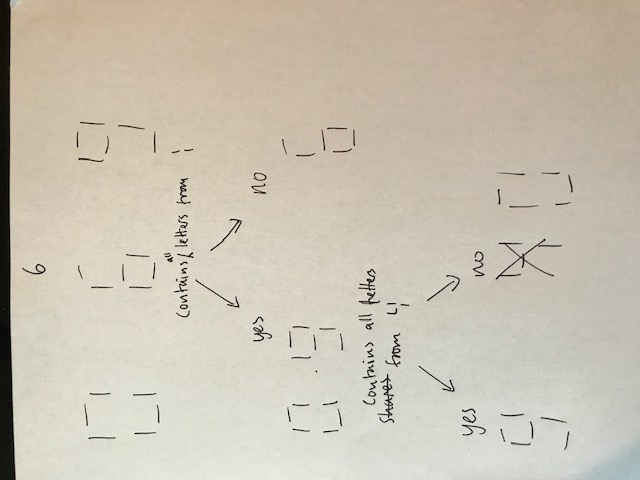 6
0 6 9
Contains all letters from 1
yes no
0 . 9 6
Contains all letters
shares from 4
yes no
9 0